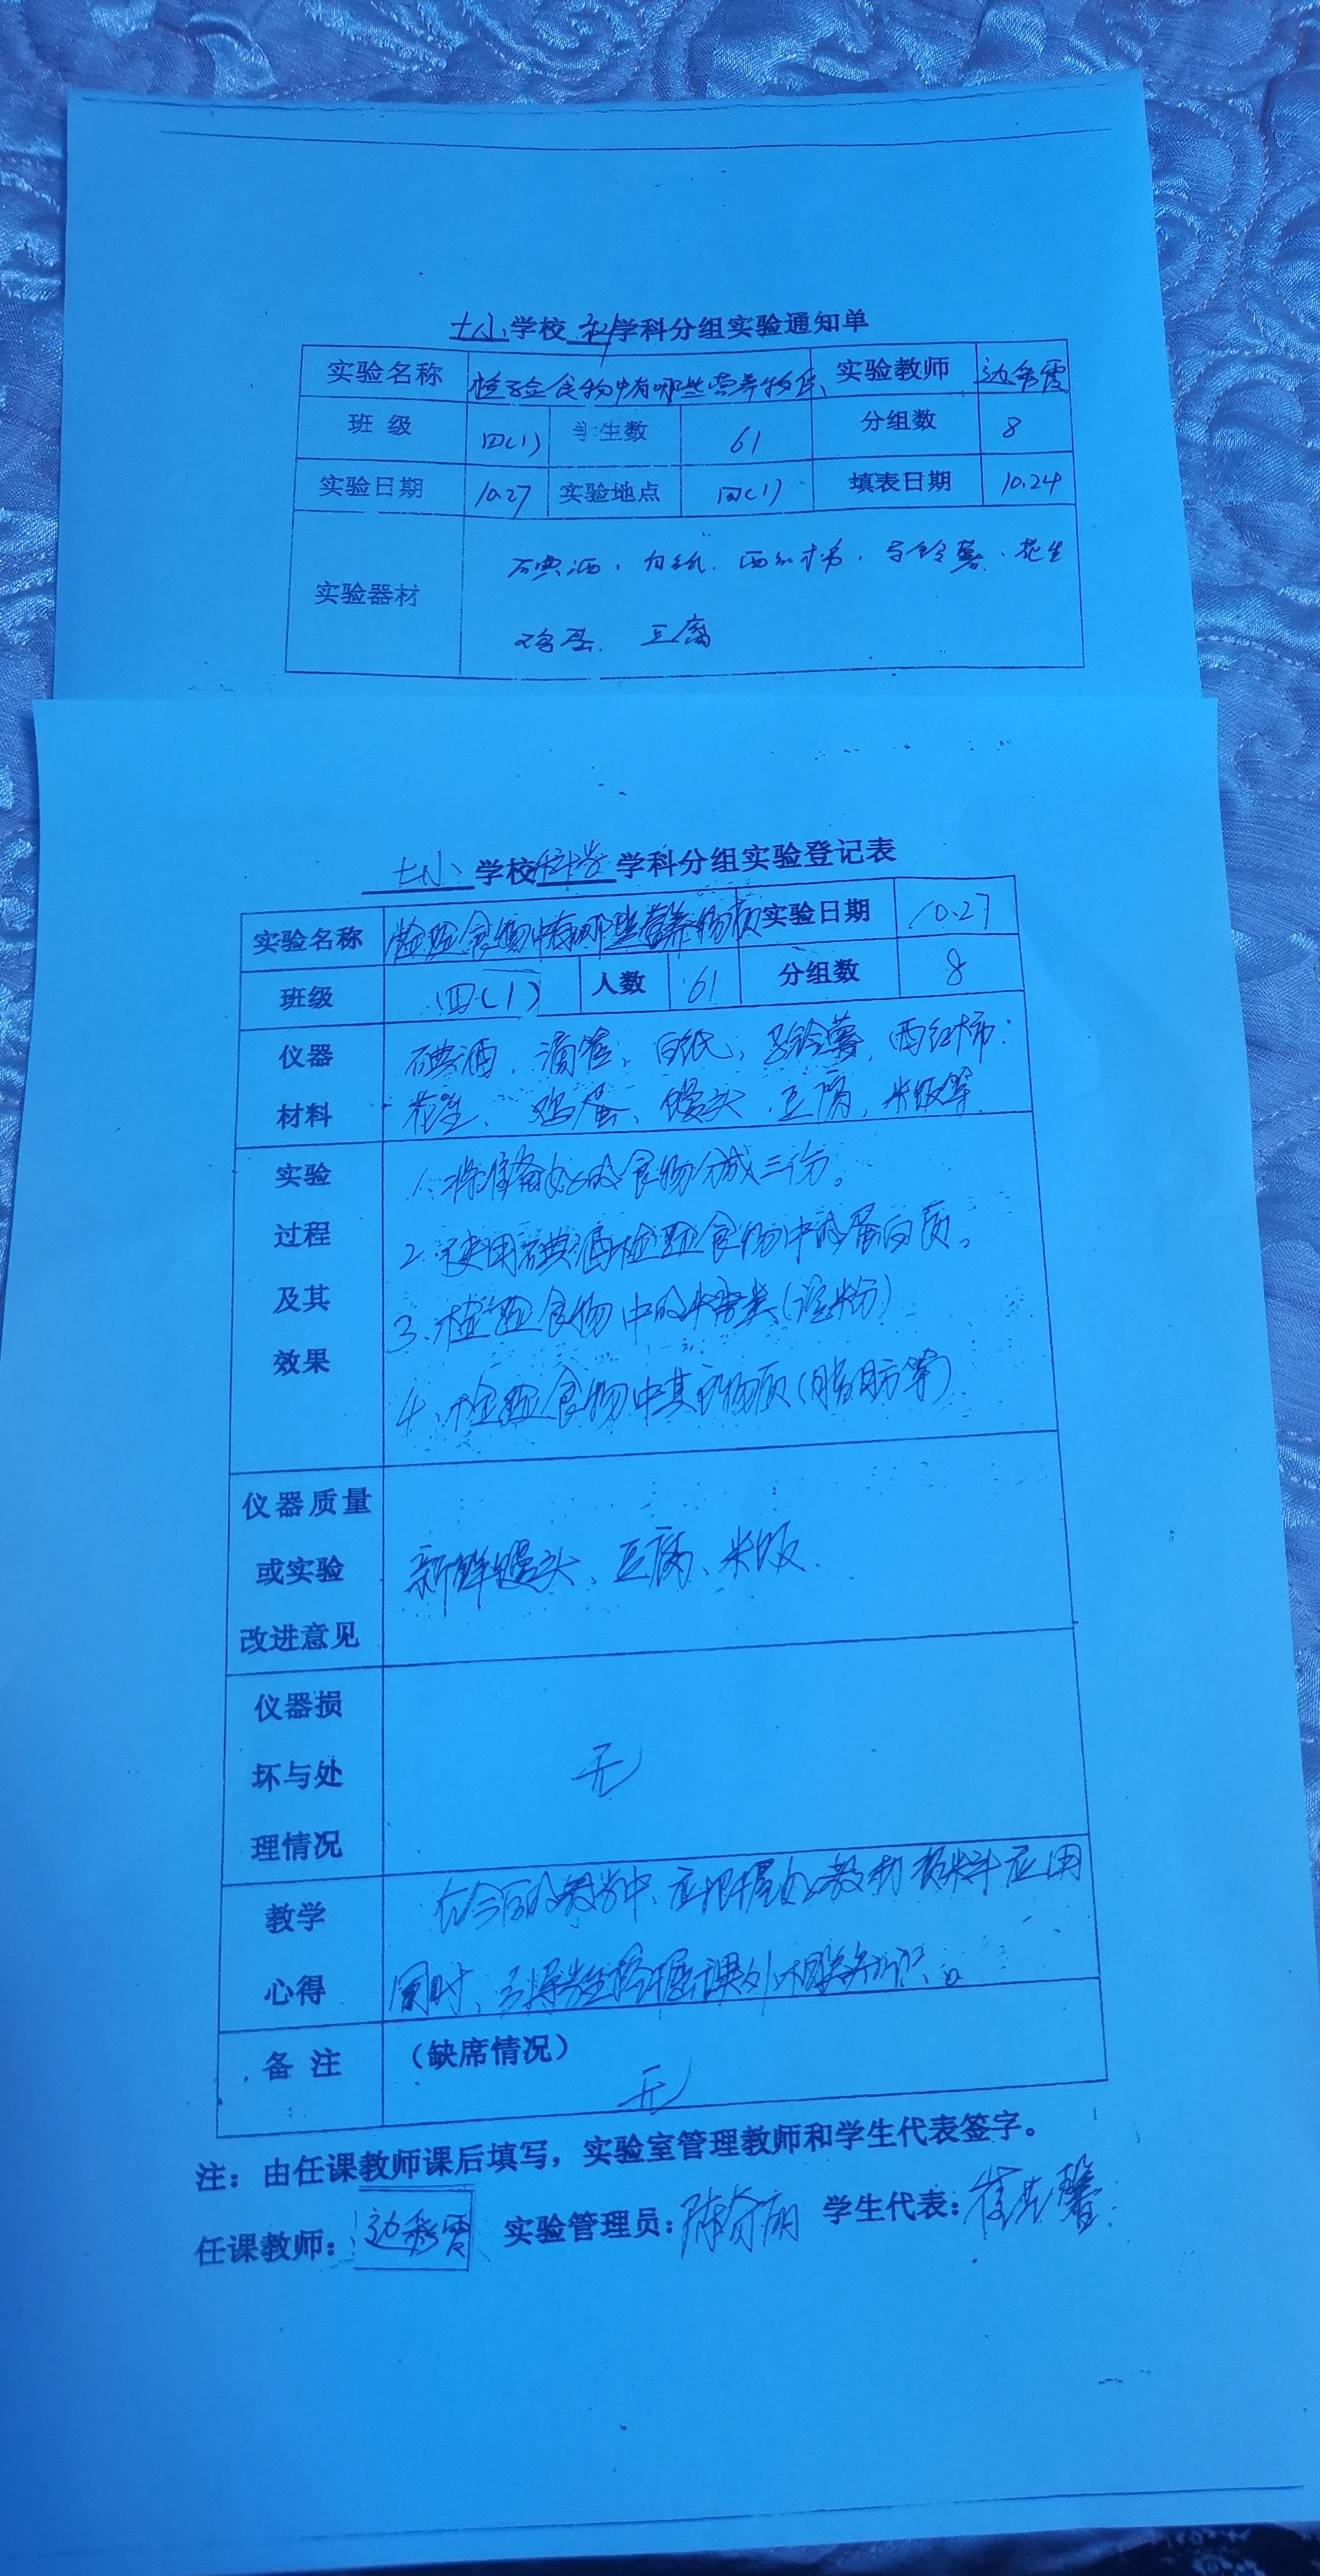 七小学校 科 学科分组实验通知单
实验名称 检验食物中有哪些营养物质 实验教师 边秀霞
班 级 四(1) 学生数 61 分组数 8
实验日期 10.27 实验地点 四(1) 填表日期 10.24
实验器材 碘酒、白纸、西红柿、马铃薯、花生
鸡蛋、豆腐
七小 学校 科学 学科分组实验登记表
实验名称 检验食物中有哪些营养物质 实验日期 10.27
班级 四(1) 人数 61 分组数 8
仪器 碘酒、滴管、白纸、马铃薯、西红柿、
材料 花生、鸡蛋、馒头、豆腐、米饭等
实验 1、将准备好的食物分成三份。
过程 2、使用碘酒检验食物中的蛋白质。
及其 3、检验食物中的糖类(淀粉)
效果 4、检验食物中其它物质(脂肪等)
仪器质量
或实验 新鲜馒头、豆腐、米饭.
改进意见
仪器损
坏与处 无
理情况
教学 在今后的教学中、应把握好教材 应用
心得 同时、引导学生 课外相关知识。
备 注 （缺席情况）
无
注：由任课教师课后填写，实验室管理教师和学生代表签字。
任课教师: 边秀霞 实验管理员: 学生代表: